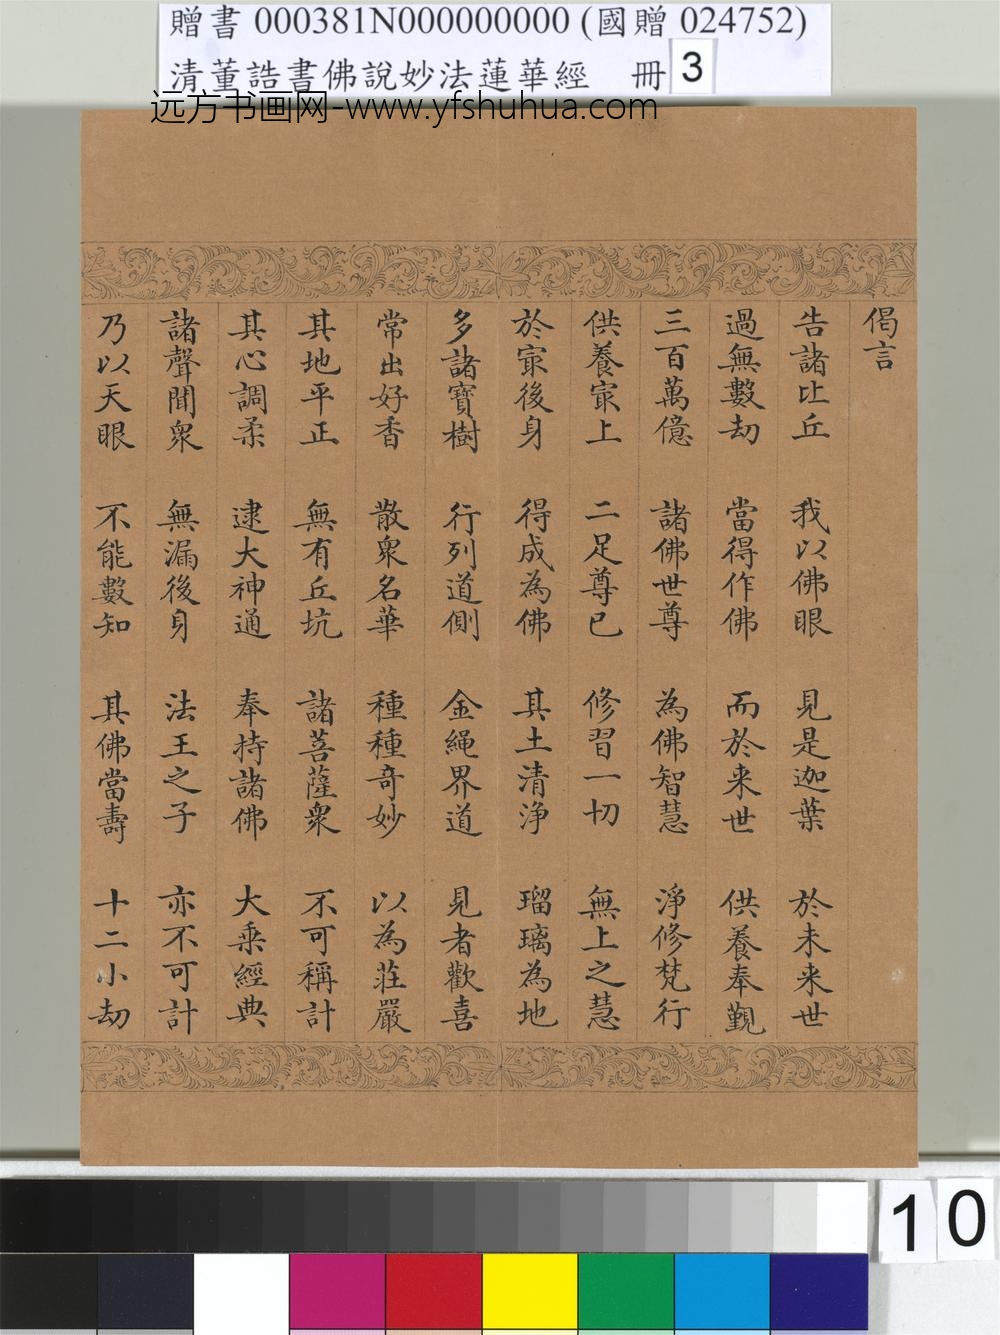 贈書 000381N000000000 (國贈 024752)
清董誥書佛說妙法蓮華經 冊 3
远方书画网-www.yfshuhua.com
偈言
告諸比丘 我以佛眼 見是迦葉 於未来世
過無數劫 當得作佛 而於来世 供養奉覲
三百萬億 諸佛世尊 為佛智慧 淨修梵行
供養㝡上 二足尊已 修習一切 無上之慧
於㝡後身 得成為佛 其土清淨 瑠璃為地
多諸寶樹 行列道側 金繩界道 見者歡喜
常出好香 散衆名華 種種奇妙 以為莊嚴
其地平正 無有丘坑 諸菩薩衆 不可稱計
其心調柔 逮大神通 奉持諸佛 大乘經典
諸聲聞衆 無漏後身 法王之子 亦不可計
乃以天眼 不能數知 其佛當壽 十二小劫
10